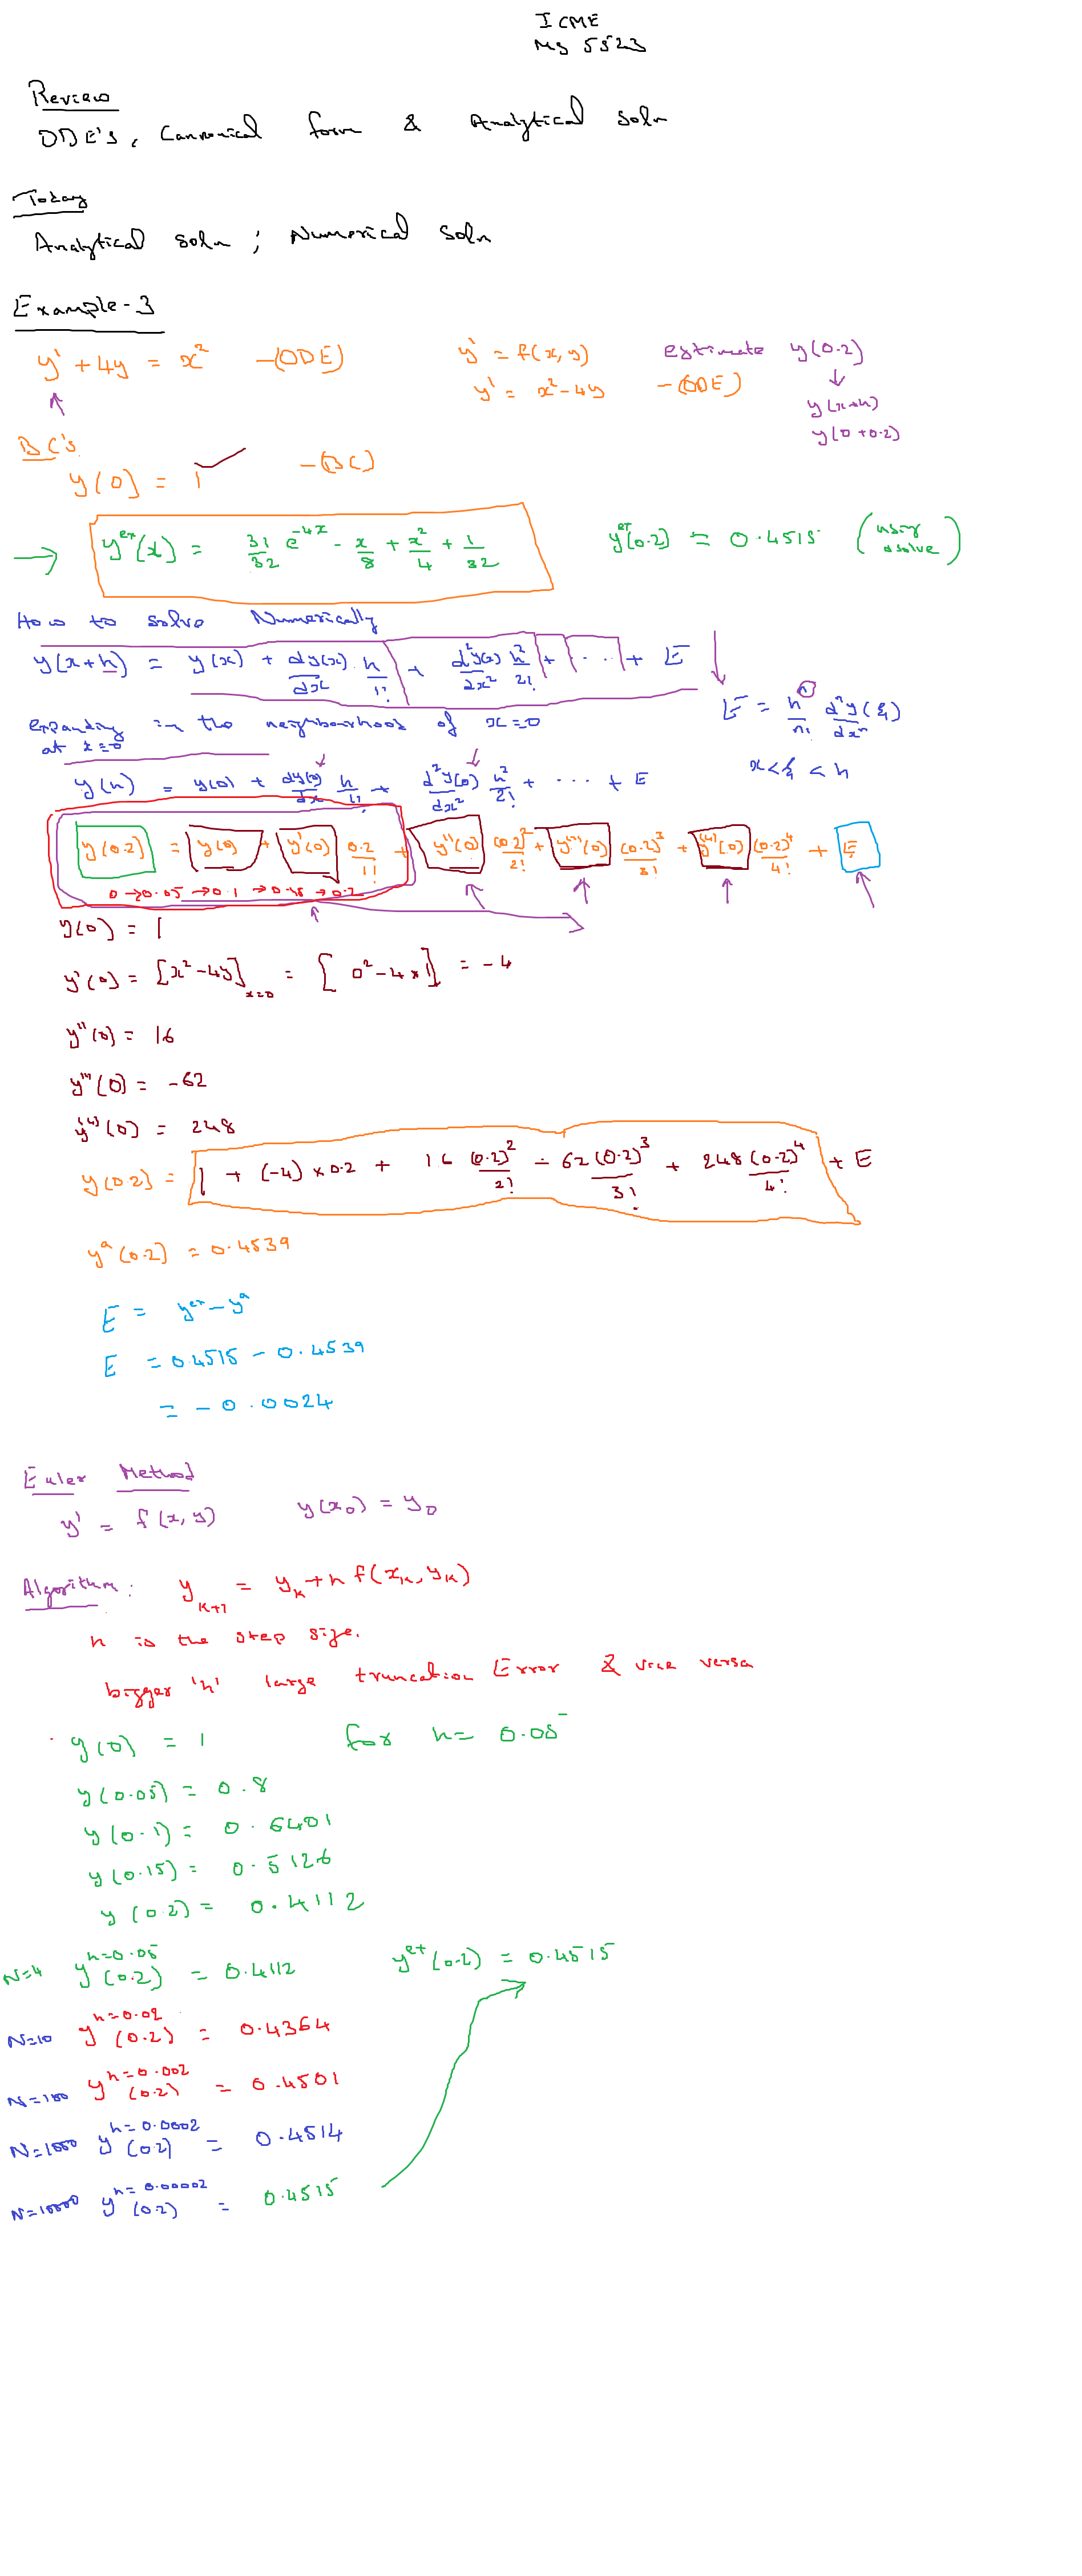 ICME
MS 5523
Review
ODE's, Canonical form & Analytical soln
Today
Analytical soln ; Numerical soln
Example-3
y' + 4y = x² -(ODE) y' = f(x,y) estimate y(0.2)
y' = x²-4y -(ODE) ↓
↑ y(x+h)
BC's y(0+0.2)
y(0) = 1 ✓ -(BC)
→ y^ex(x) = 31/32 e^-4x - x/8 + x²/4 + 1/32 y^ex(0.2) = 0.4515 (using dsolve)
How to solve Numerically
y(x+h) = y(x) + dy(x)/dx · h/1! + d²y(x)/dx² h²/2! + ... + E
E = h^n/n! d^n y(ξ)/dx^n
expanding in the neighbourhood of x=0
at x=0
x<ξ<h
y(h) = y(0) + dy(0)/dx h/1! + d²y(0)/dx² h²/2! + ... + E
y(0.2) = y(0) + y'(0) 0.2/1! + y''(0) (0.2)²/2! + y'''(0) (0.2)³/3! + y⁽⁴⁾(0) (0.2)⁴/4! + E
0→0.05→0.1→0.15→0.2
y(0) = 1
y'(0) = [x²-4y]x=0 = [0²-4×1] = -4
y''(0) = 16
y'''(0) = -62
y⁽⁴⁾(0) = 248
y(0.2) = 1 + (-4)×0.2 + 16 (0.2)²/2! - 62(0.2)³/3! + 248(0.2)⁴/4! + E
y^a(0.2) = 0.4539
E = y^ex - y^a
E = 0.4515 - 0.4539
= -0.0024
Euler Method
y' = f(x,y) y(x₀) = y₀
Algorithm: y_k+1 = y_k + h f(x_k, y_k)
h is the step size.
bigger 'h' large truncation Error & vice versa
y(0) = 1 for h= 0.05
y(0.05) = 0.8
y(0.1) = 0.6401
y(0.15) = 0.5126
y(0.2) = 0.4112
N=4 y^h=0.05(0.2) = 0.4112 y^ex(0.2) = 0.4515
N=10 y^h=0.02(0.2) = 0.4364
N=100 y^h=0.002(0.2) = 0.4501
N=1000 y^h=0.0002(0.2) = 0.4514
N=10000 y^h=0.00002(0.2) = 0.4515